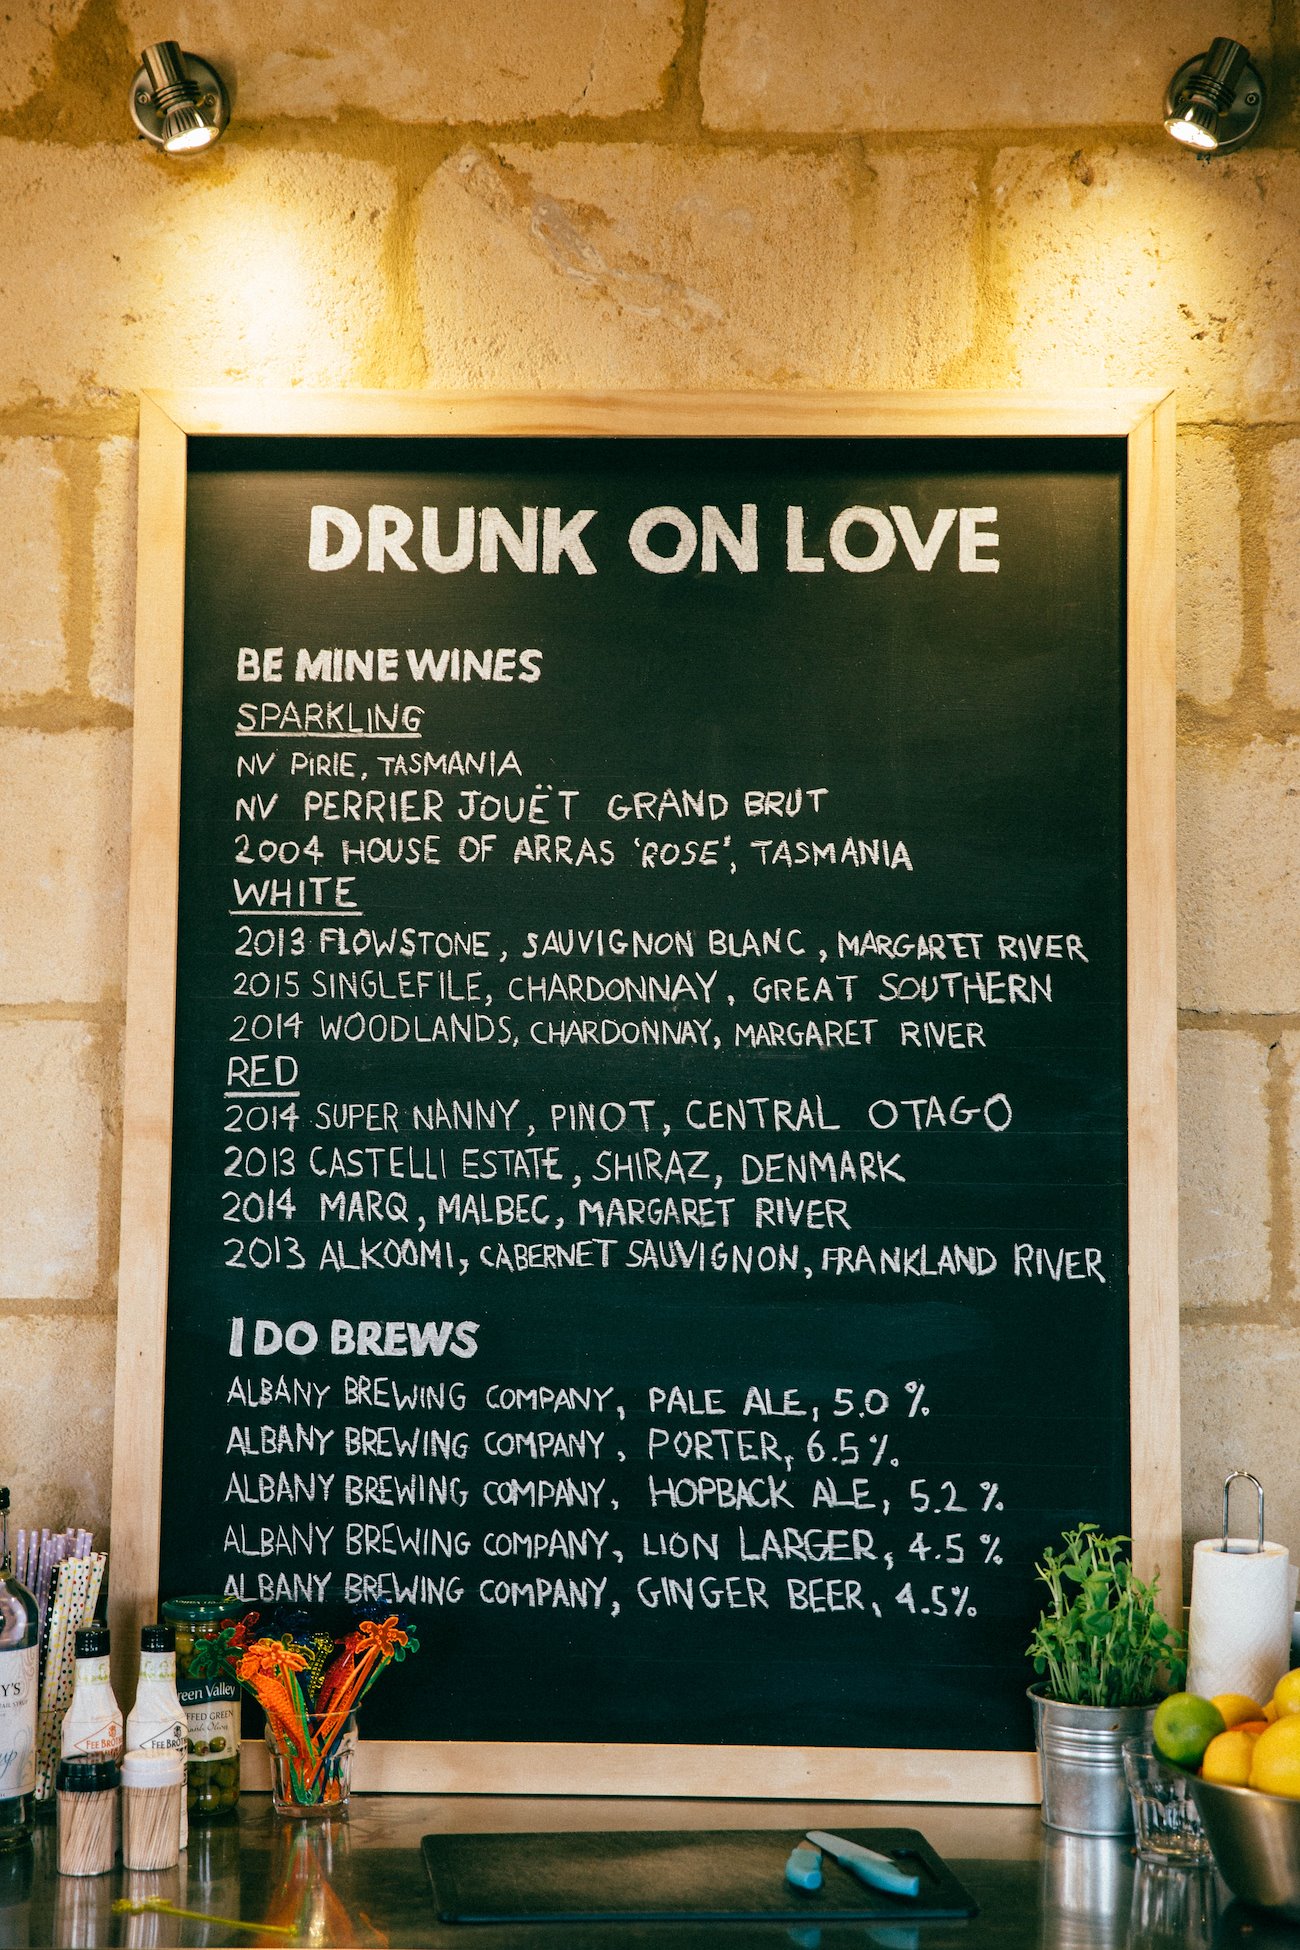 DRUNK ON LOVE
BE MINE WINES
SPARKLING
NV PIRIE, TASMANIA
NV PERRIER JOUËT GRAND BRUT
2004 HOUSE OF ARRAS 'ROSE', TASMANIA
WHITE
2013 FLOWSTONE, SAUVIGNON BLANC, MARGARET RIVER
2015 SINGLEFILE, CHARDONNAY, GREAT SOUTHERN
2014 WOODLANDS, CHARDONNAY, MARGARET RIVER
RED
2014 SUPER NANNY, PINOT, CENTRAL OTAGO
2013 CASTELLI ESTATE, SHIRAZ, DENMARK
2014 MARQ, MALBEC, MARGARET RIVER
2013 ALKOOMI, CABERNET SAUVIGNON, FRANKLAND RIVER
I DO BREWS
ALBANY BREWING COMPANY, PALE ALE, 5.0 %
ALBANY BREWING COMPANY, PORTER, 6.5%
ALBANY BREWING COMPANY, HOPBACK ALE, 5.2 %
ALBANY BREWING COMPANY, LION LARGER, 4.5 %
ALBANY BREWING COMPANY, GINGER BEER, 4.5%
Y'S
FEE BRO
FEE BRO
reen Valley
FFED GREEN